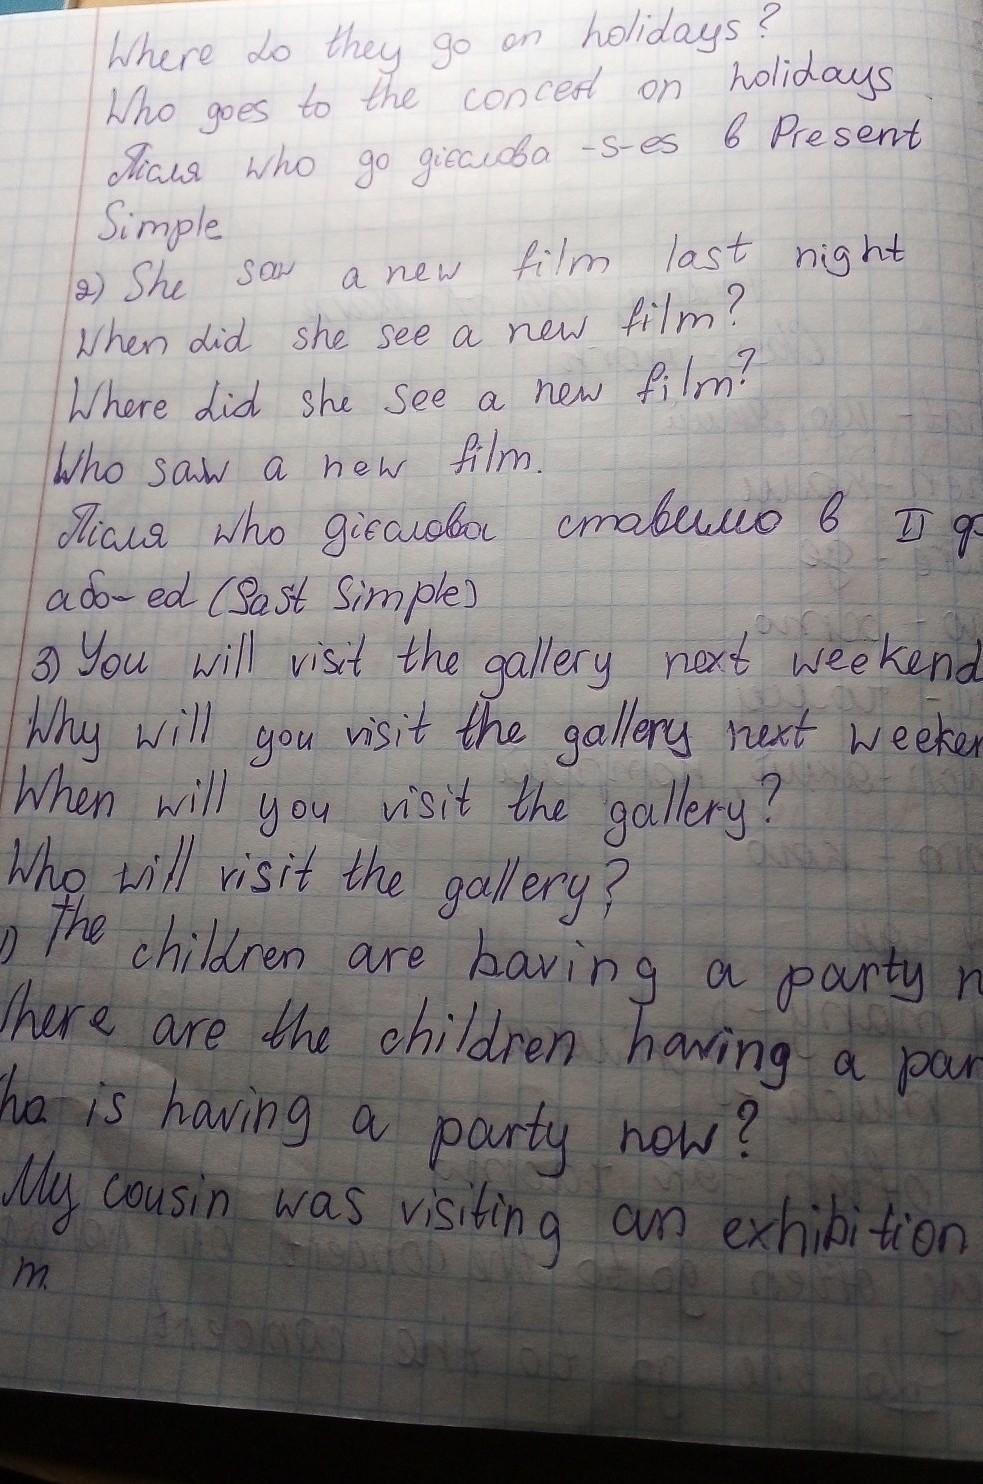 Where do they go on holidays?
Who goes to the concert on holidays
Після who до дієслова -s-es в Present
Simple
2) She saw a new film last night
When did she see a new film?
Where did she see a new film?
Who saw a new film.
Після who дієслова ставимо в II ф
або-ed (Past Simple)
3) You will visit the gallery next weekend
Why will you visit the gallery next weeken
When will you visit the gallery?
Who will visit the gallery?
1) The children are having a party n
Where are the children having a par
Who is having a party now?
My cousin was visiting an exhibition
m.